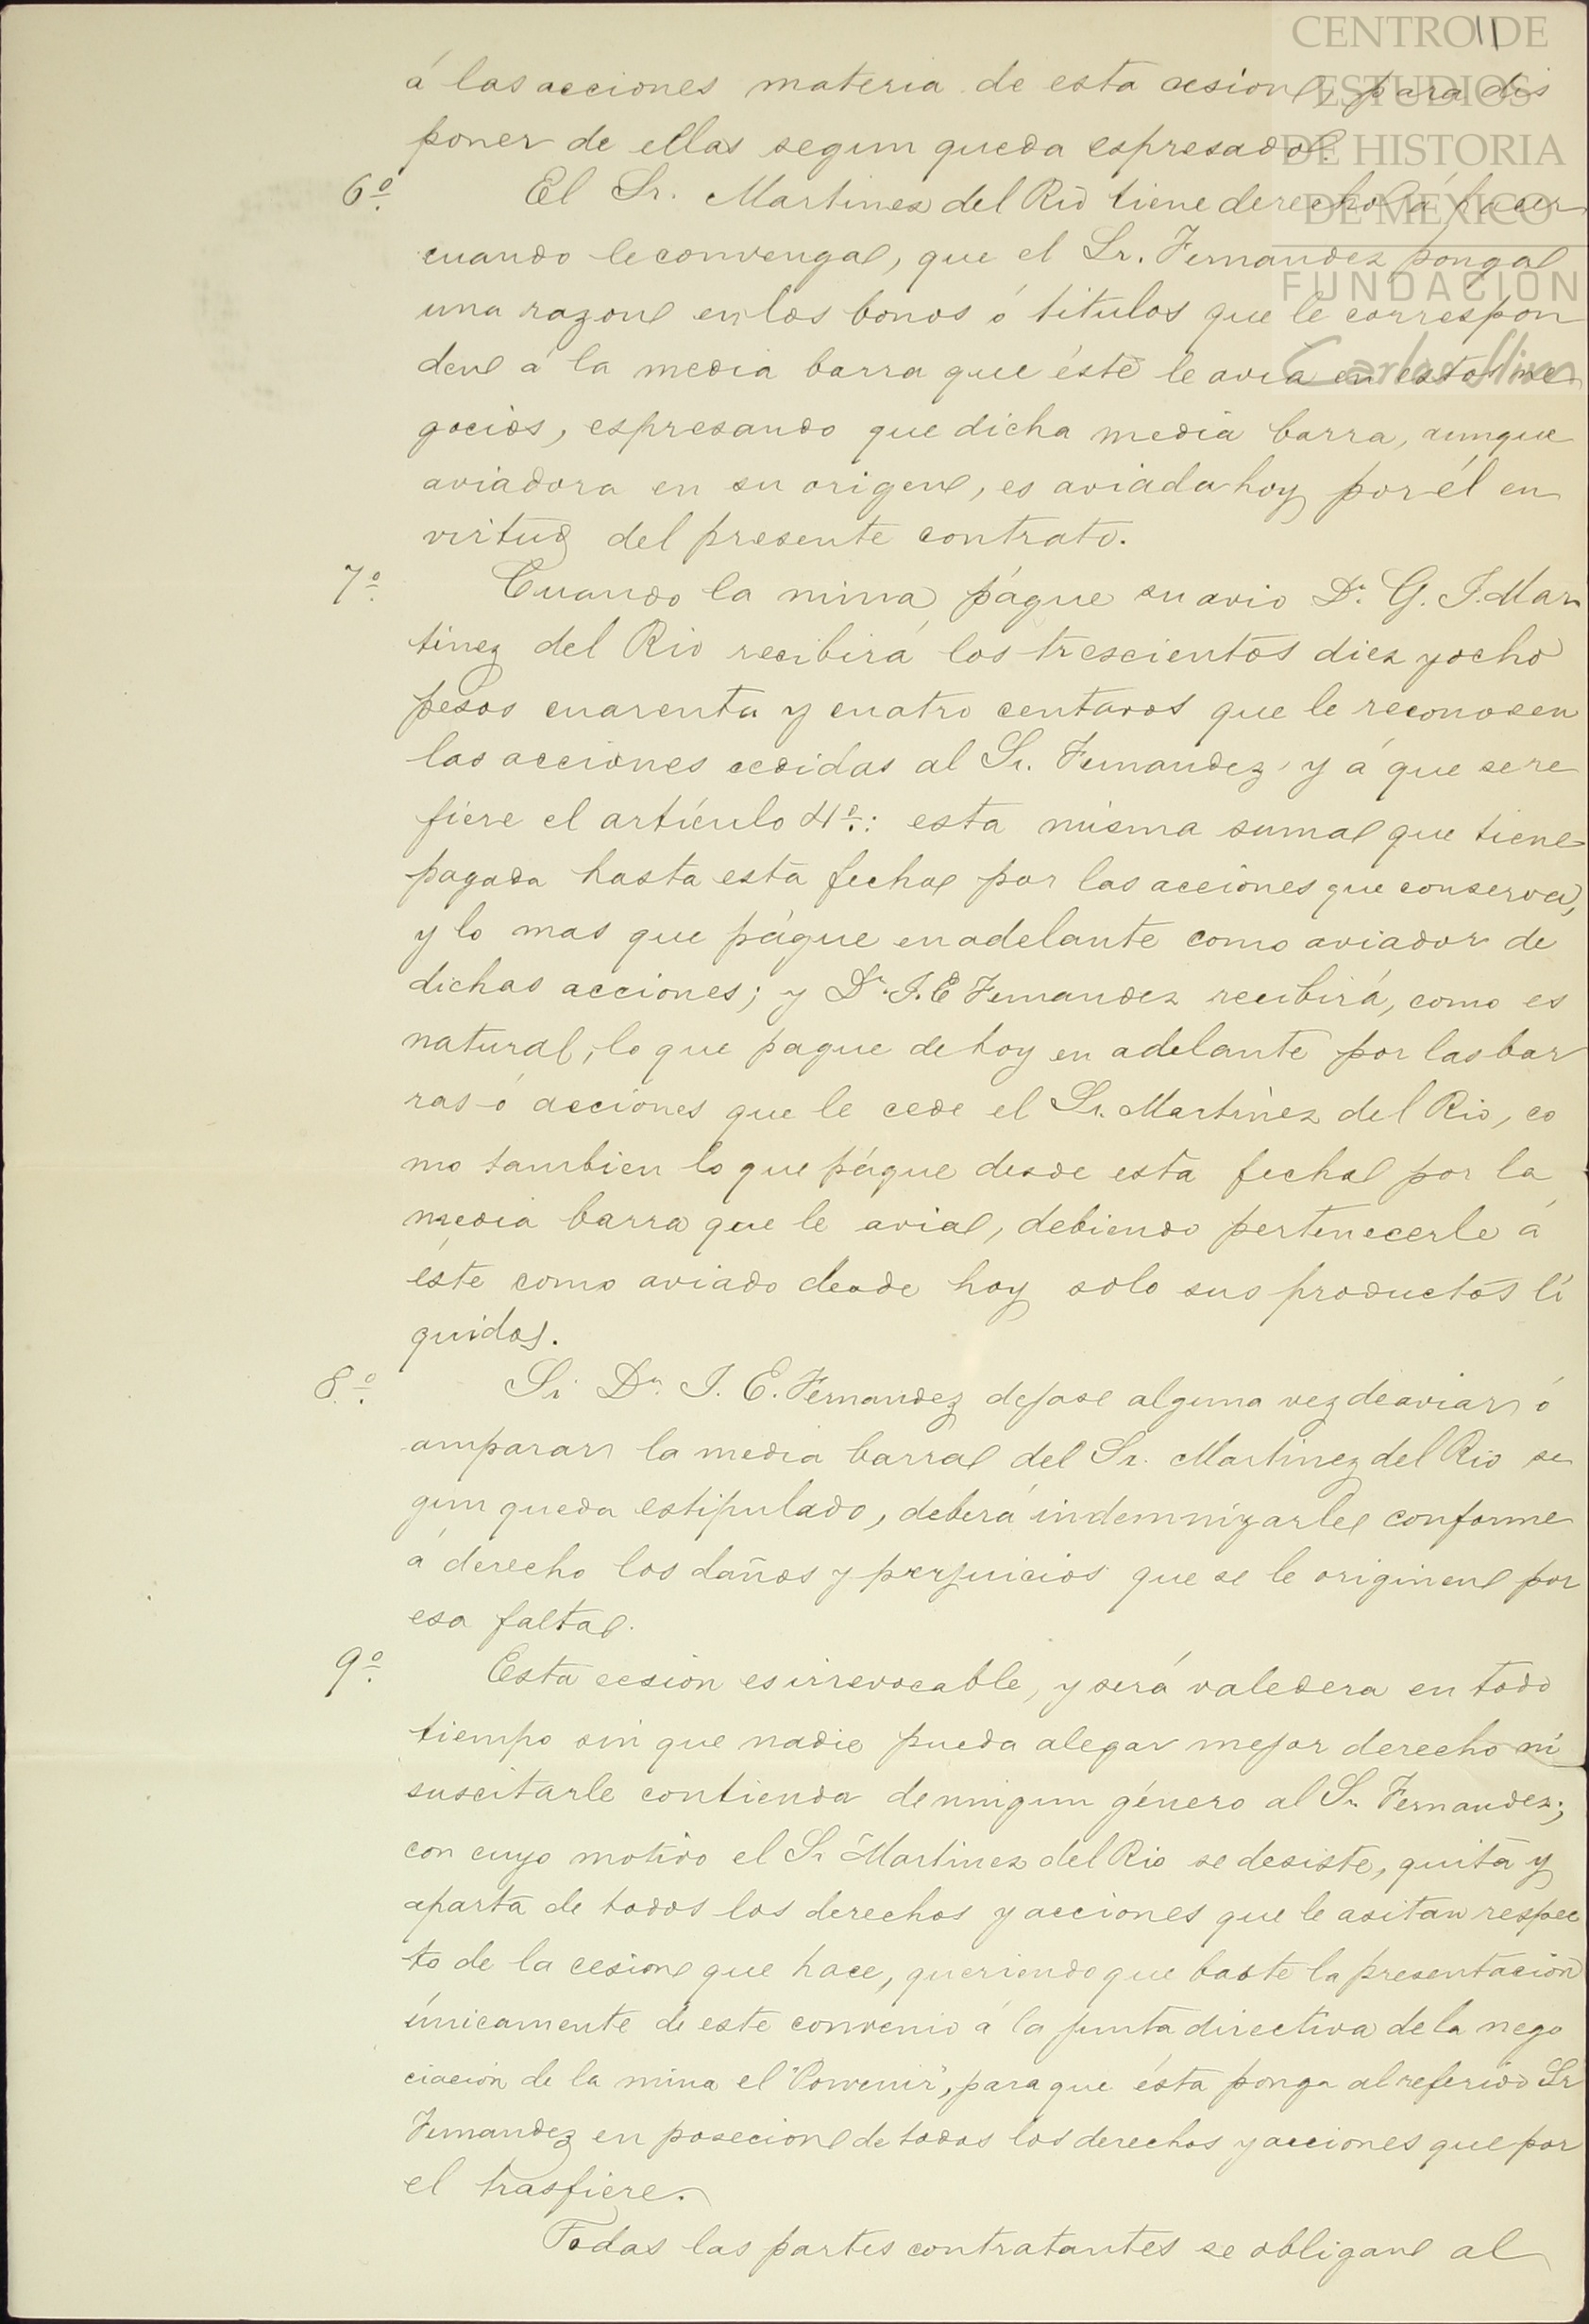 11
CENTRO DE
ESTUDIOS
DE HISTORIA
DE MÉXICO
FUNDACIÓN
Carlos Slim
á las acciones materia de esta cesion, para dis
poner de ellas segun queda espresado.
6º. El Sr. Martinez del Rio tiene derecho á hacer
cuando le convenga, que el Sr. Fernandez ponga
una razon en los bonos ó titulos que le correspon
den á la media barra que éste le avia en estos ne
gocios, espresando que dicha media barra, aunque
aviadora en su origen, es aviada hoy por él en
virtud del presente contrato.
7º. Cuando la mina págue su avio Dn. G. I. Mar
tinez del Rio recibirá los trescientos diez y ocho
pesos cuarenta y cuatro centavos que le reconocen
las acciones cedidas al Sr. Fernandez y á que se re
fiere el artículo 4º.: esta misma suma que tiene
pagada hasta esta fecha por las acciones que conserva,
y lo mas que págue en adelante como aviador de
dichas acciones; y Dn. I. E Fernandez recibirá, como es
natural, lo que pague de hoy en adelante por las bar
ras ó acciones que le cede el Sr. Martinez del Rio, co
mo tambien lo que págue desde esta fecha por la
media barra que le avia, debiendo pertenecerle á
éste como aviado desde hoy solo sus productos lí
quidos.
8º. Si Dn. I. E. Fernandez dejase alguna vez de aviar ó
amparar la media barra del Sr. Martinez del Rio se
gun queda estipulado, deberá indemnizarle conforme
á derecho los daños y perjuicios que se le originen por
esa falta.
9º. Esta cesion es irrevocable, y será valedera en todo
tiempo sin que nadie pueda alegar mejor derecho ni
suscitarle contienda de ningun género al Sr. Fernandez;
con cuyo motivo el Sr Martinez del Rio se desiste, quita y
aparta de todos los derechos y acciones que le asitan respec
to de la cesion que hace, queriendo que baste la presentacion
únicamente de este convenio á la junta directiva de la nego
ciacion de la mina el "Porvenir", para que ésta ponga al referido Sr
Fernandez en posecion de todos los derechos y acciones que por
el trasfiere.
Todas las partes contratantes se obligan al